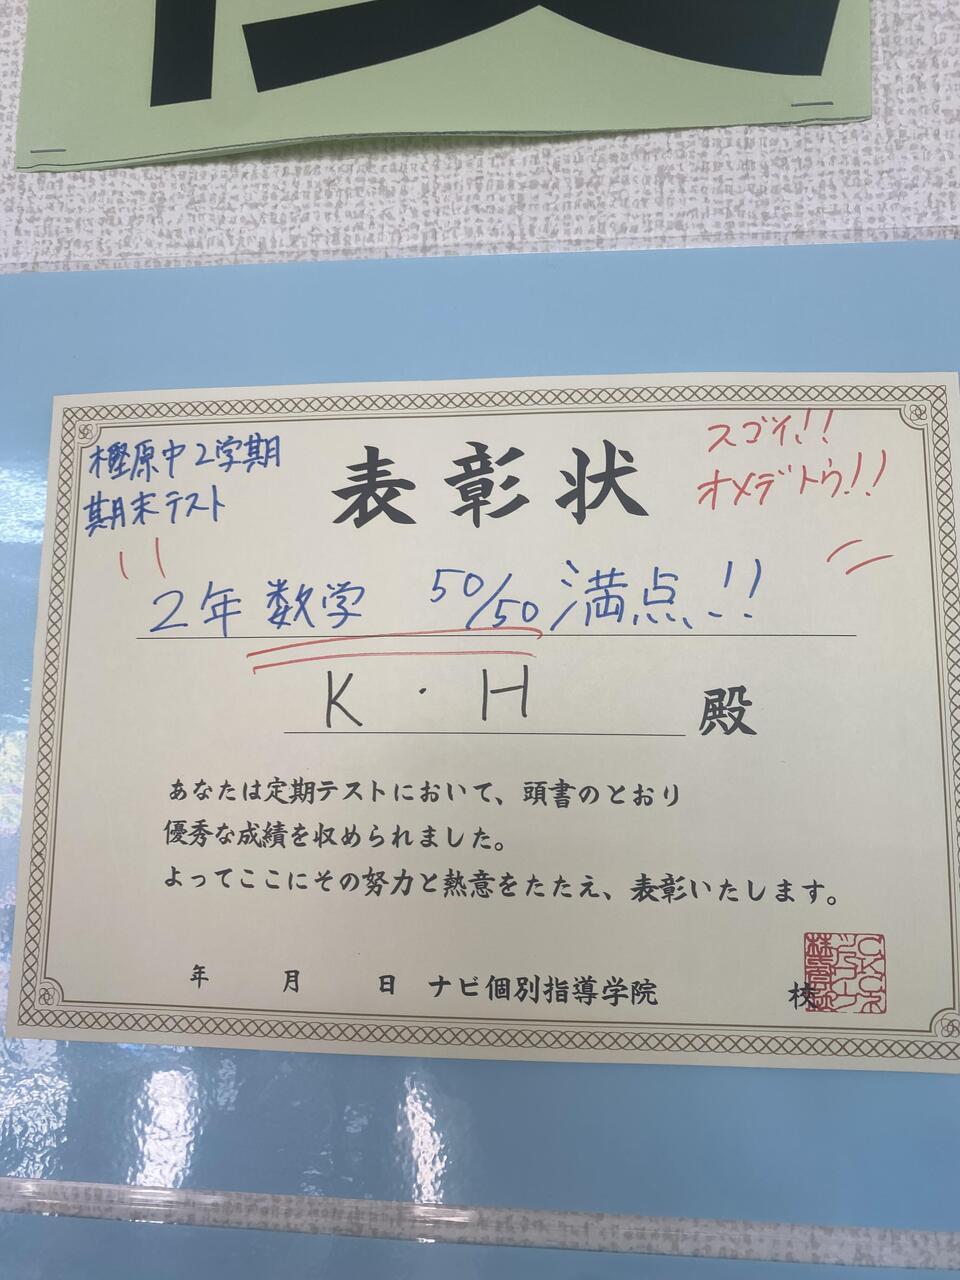 樫原中2学期
期末テスト
表彰状
スゴイ!!
オメデトウ!!
2年 数学 50/50 満点!!
K・H 殿
あなたは定期テストにおいて、頭書のとおり
優秀な成績を収められました。
よってここにその努力と熱意をたたえ、表彰いたします。
年 月 日 ナビ個別指導学院 校